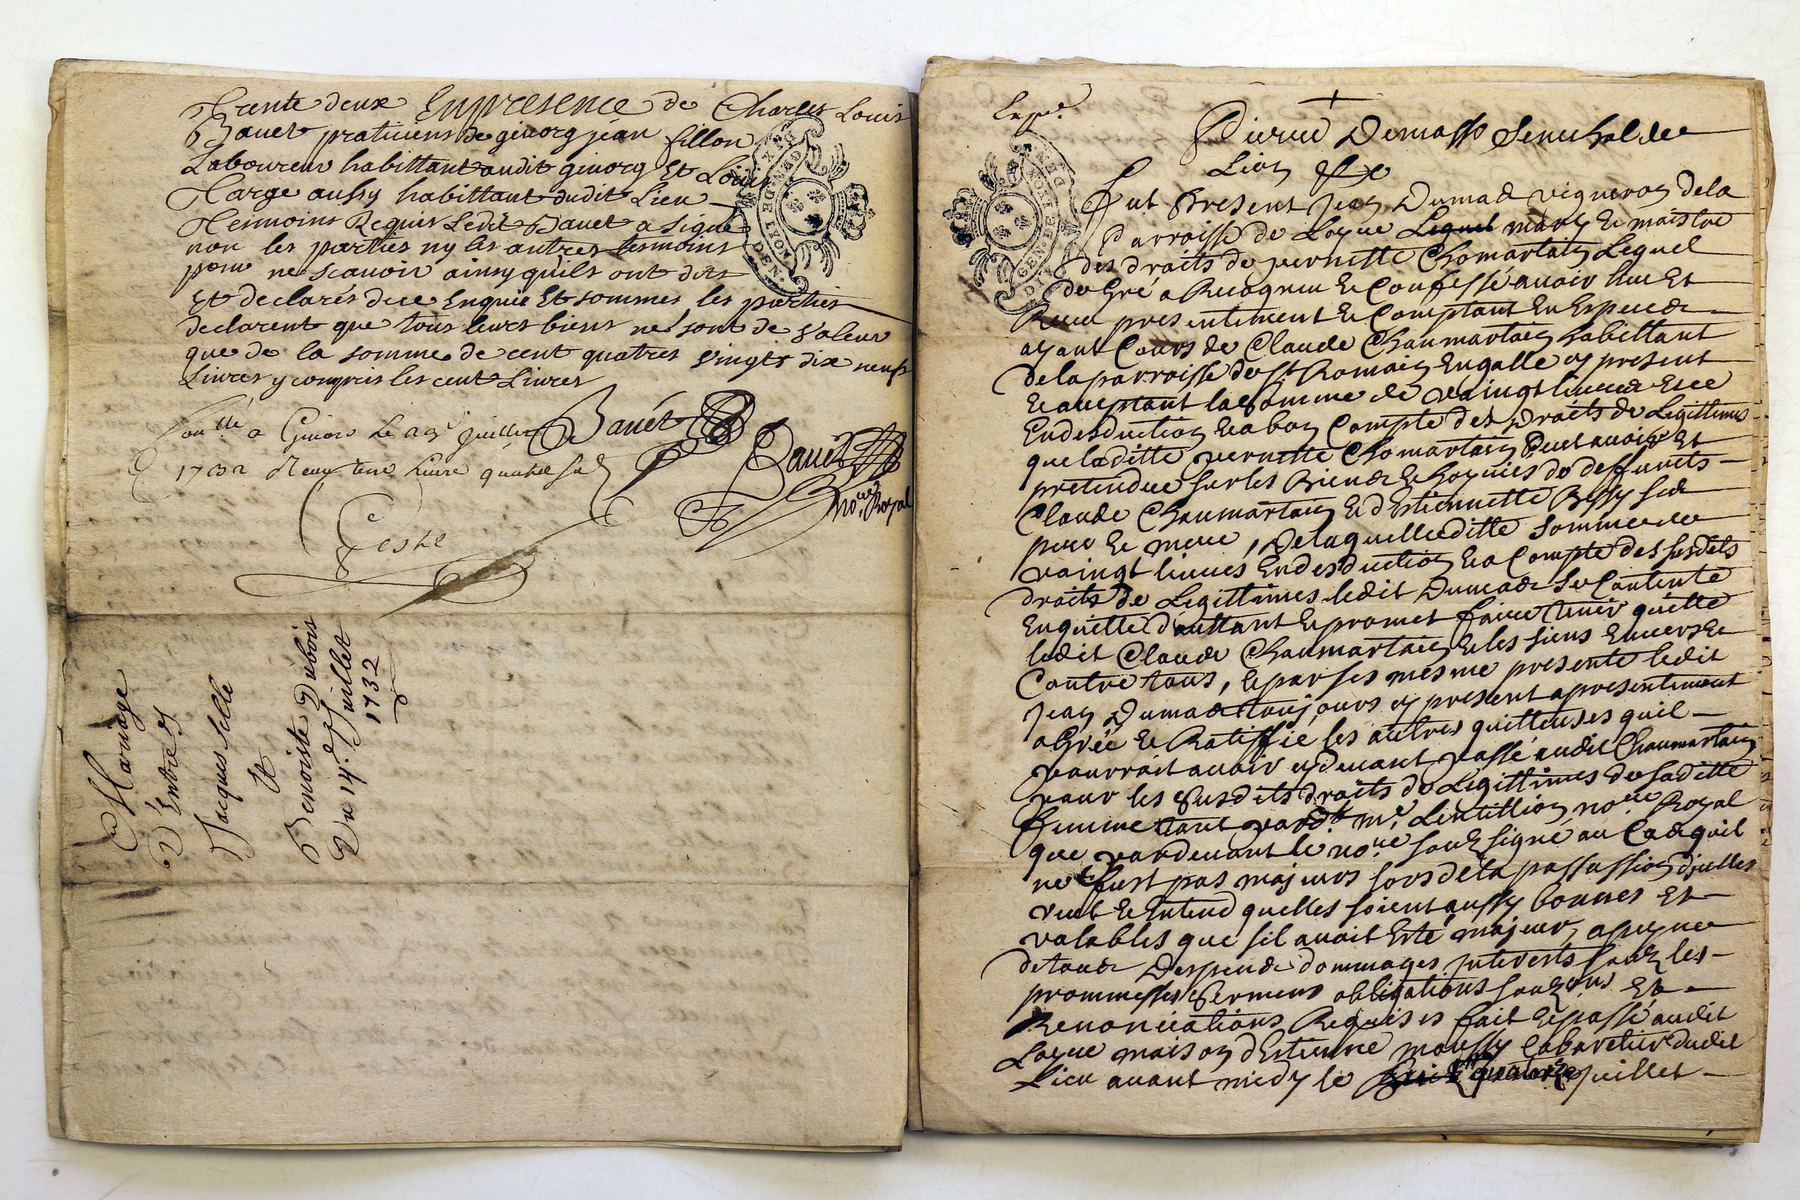 Trente deux Enpresence de Charles Louis
Bauet praticiens de giuorg jean fillon
Laboureur habittant audit giuorg Et Louis
Farge aussy habittant dudit Lieu
Tesmoins Requis Ledit Bauet a signé
non les parties ny les autres tesmoins
pour ne scauoir ainsy quils ont dit
Et declarés de ce Enquis Et sommes, les parties
declarent que tous leurs biens ne sont de valeur
que de la somme de cent quatres vingts dix neufs
Livres y compris les cent Livres
Bauet
a Giuors Le juillet
1732 Receu liure quatre
Bauet
no.re Royal
Mariage
D'Entre
Jacques
Et
Benoiste Dubois
Du 14.e Juillet
1732
DE LYON
GENER
GENER DE LYON
Exp.e
Pierre Demasso Senechal de
Lion &c
fut Present Jean Dumas vigneron de la
Parroisse de Loyre Lequel mary Et maistre
des droits de pernette Chomartain Lequel
de Gré a Recogneu Et Confessé auoir heu Et
Receu presentement Et Comptant En Especes
ayant Cours de Claude Chaumartain habittant
de la parroisse de St Romain Engalle cy present
Et aceptant la somme de vaingt liures Et ce
En desduction Et a bon Compte des Droits de Legittimes
que laditte pernette Chomartain Peut auoir Et
pretendre sur les Biens Et hoyries de deffunts
Claude Chaumartain Et d'Estiennette Bessy ses
pere Et mere, De laquelleditte somme de
vaingt liures En desduction Et a Compte des susdits
droits de Legittimes ledit Dumas se Contente
En quitte d'autant Et promet faire tenir quitte
ledit Claude Chaumartain Et les siens Enuers Et
Contre tous, Et par ses mesme presente ledit
Jean Dumas toujours cy present a presentement
aGréé Et Ratiffié les autres quittenses quil
pourroit auoir cy deuant passé audit Chaumartain
pour les susdits droits de Legittimes de saditte
femme tant pard.t m.e Lentillion no.re Royal
que pardeuant le no.re souz signé au Cas quil
ne fust pas majeurs lors de la passassion d'jcelles
veut Et Entend quelles soient aussy bonnes Et
valables que sil auoit Esté majeur, a peyne
de tous Despens dommages jnterests souz les
prommesses sermens obligations souzons Et
Renonciations Requises fait Et passé audit
Loyre maison d'Estienne moussy Cabaretier dudit
Lieu auant midy le quatorze juillet